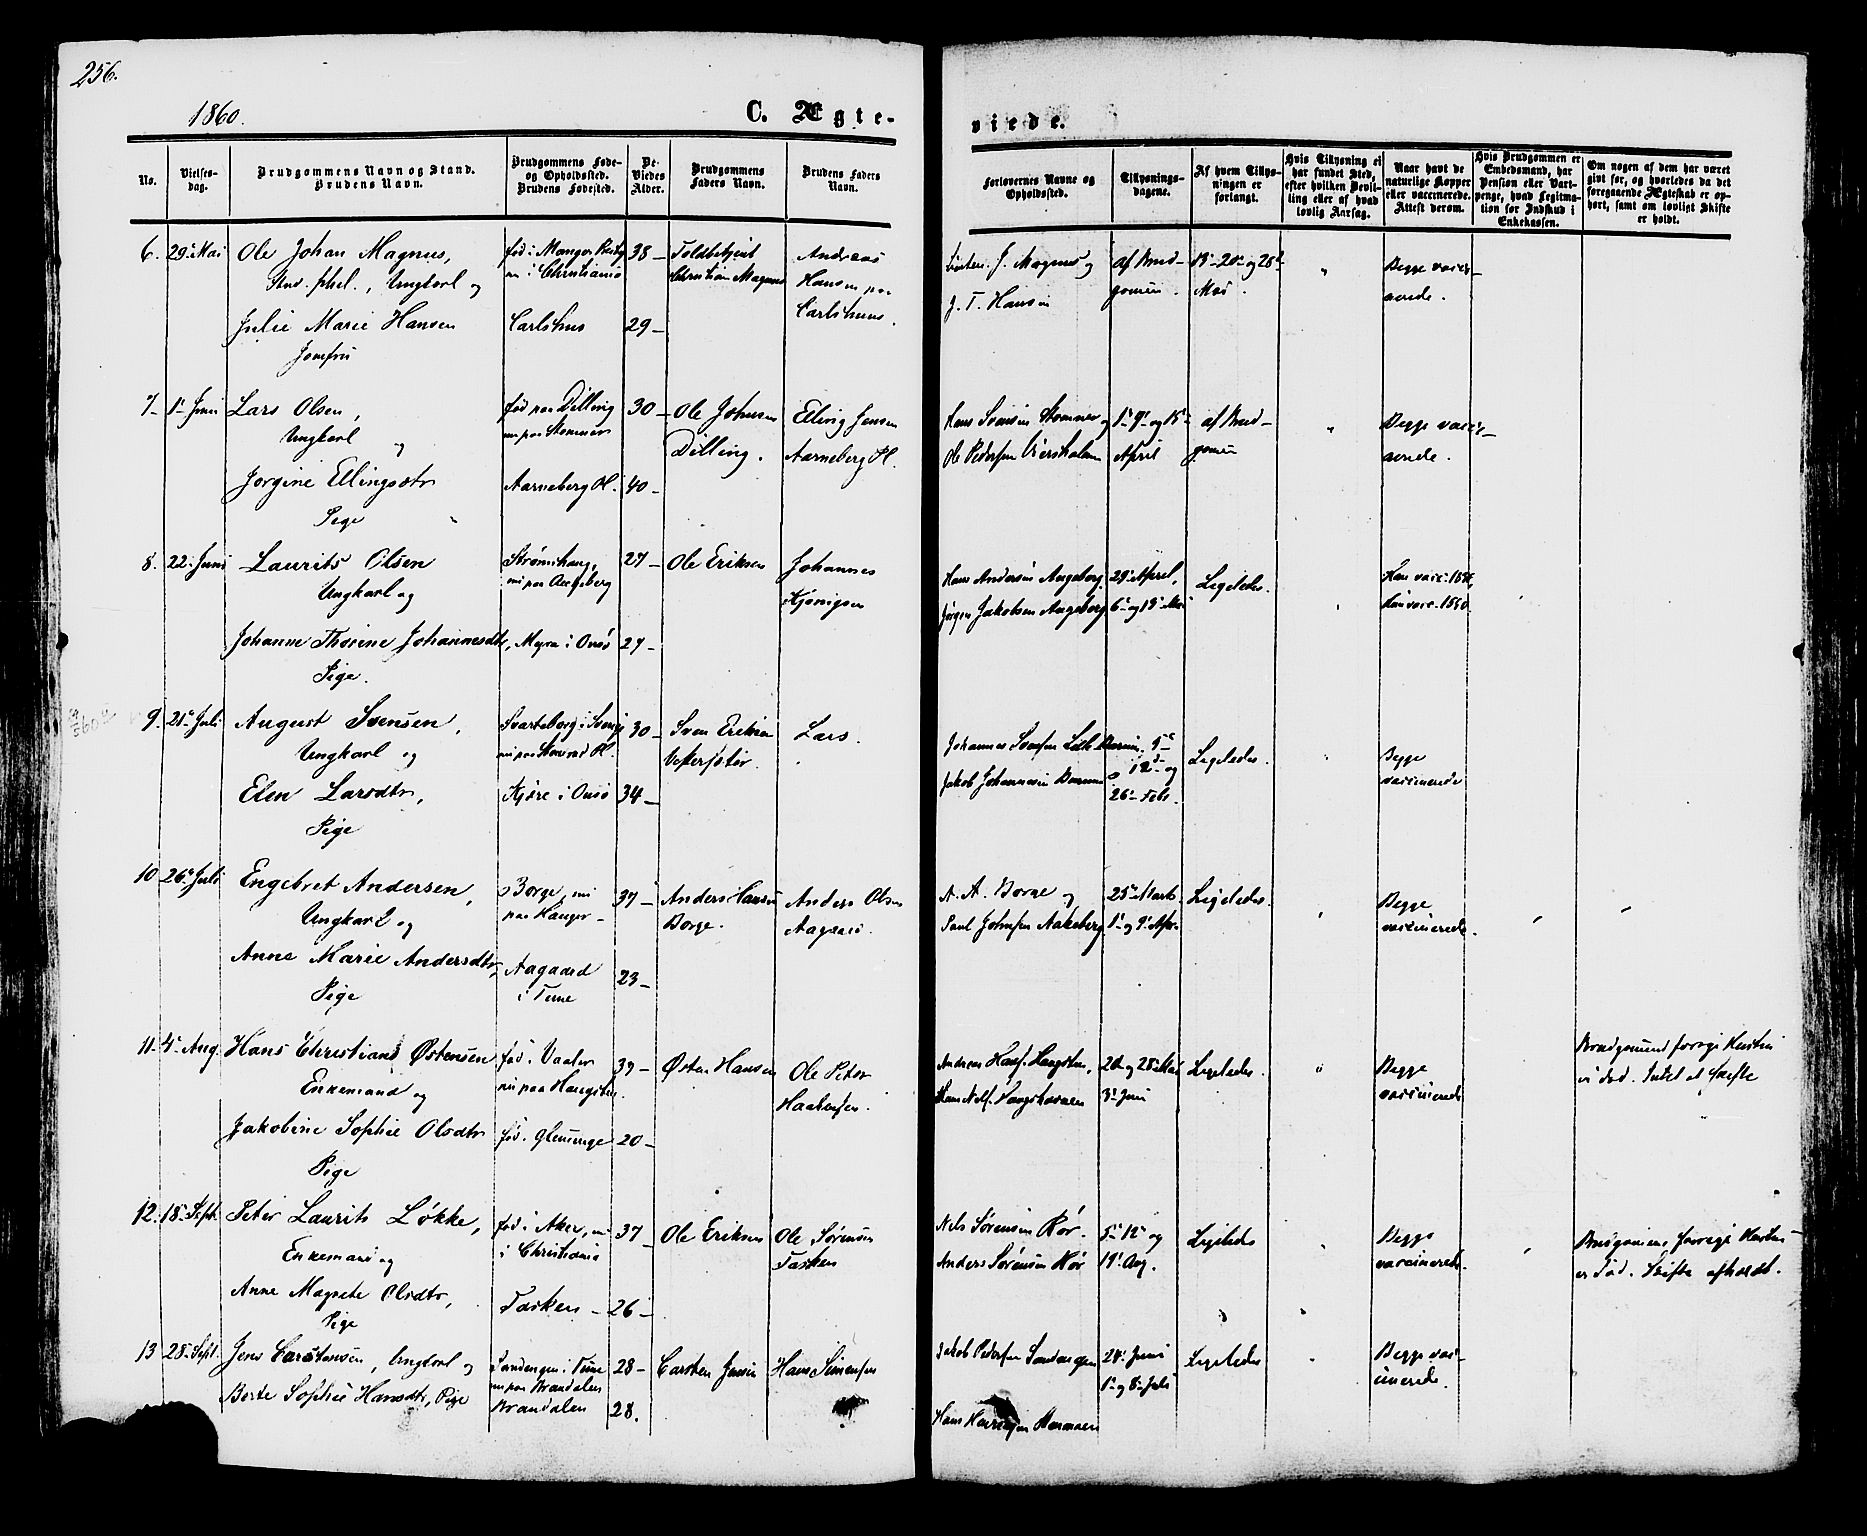 256.
1860.
C. Ægte-
viede.
No.
Vielses-
dag.
Brudgommens Navn og Stand.
Brudens Navn.
Brudgommens Føde-
og Opholdssted.
Brudens Fødested.
De
Viedes
Alder.
Brudgommens
Faders Navn.
Brudens Faders
Navn.
Forlovernes Navne og
Opholdssted.
Tillysnings-
dagene.
Af hvem Tillys-
ningen er
forlangt.
Hvis Tillysning ei
har fundet Sted,
efter hvilken Bevil-
ling eller af hvad
lovlig Aarsag.
Naar havt de
naturlige Kopper
eller vaccinerede.
Attest derom.
Hvis Brudgommen er
Embedsmand, har
Pension eller Vart-
penge, hvad Legitima-
tion for Indskud i
Enkekassen.
Om nogen af dem har været
givt før, og hvorledes da det
foregaaende Ægteskab er op-
hørt, samt om lovligt Skifte
er holdt.
6. 29 Mai
Ole Johan Magnus,
Stud. phil., Ungkarl og
Julie Marie Hansen
Jomfru
nu i Christiania
Carlshus
38 -
29 -
Toldbetjent
Christian Magnus
Andreas
Hansen paa
Carlshuus.
J. Magnus og
J. T. Hansen
af Brud-
gomen.
Mai.
"
Begge vacci-
nerede.
7 - 1 Juni
Lars Olsen,
Ungkarl
og
Jørgine Ellingsdtr
Pige
fød paa Dilling
nu paa Stomner
Aarneberg Pl.
30 -
40 -
Ole Johnsen
Dilling.
Elling Jensen
Aarneberg Pl.
Hans Svensen Stomner og
Ole Pedersen
1 - 9 - og 15
April
af Brud-
gomen
"
Begge vacci-
nerede.
8. 22 Juni
Laurits Olsen
Ungkarl og
Johanne Thorine Johannesdtr,
Pige.
Strømshaug,
nu paa Augeberg
Myra i Onsø
27 -
27 -
Ole Eriksen
Johannes
Hans Andersen Augeberg.
Jørgen Jakobsen Augeberg
29 April,
6 og 13 Mai
Ligeledes.
Hun vacc. 1860.
9. 21 Juli
August Svensen,
Ungkarl og
Elen Larsdtr,
Pige
Svarteborg i Sverige
Kjære i Onsø
30 -
34 -
Sven Eriksen
Lars.
Jakob Johannesen
12 og
26 Febr.
Ligeledes.
Begge
vaccinerede
10 26 Juli
Engebret Andersen,
Ungkarl og
Anne Marie Andersdtr,
Pige
Borge, nu
paa Hauger -
Aagaard
i Tune
37 -
23 -
Anders Hansen
Borge.
Anders Olsen
Aagaard.
A. A. Borge og
Paul Johnsen Aakeberg
25 Marts
1 og 9 Apr.
Ligeledes.
"
Begge
vaccinerede.
11. 4 Aug.
Hans Christian Østensen
Enkemand og
Jakobine Sophie Olsdtr
Pige
fød i Vaaler
nu paa Haugsten.
fød i Glemmenge
39 -
20 -
Østen Hansen
Ole Peter
20 og 28 Mai
3 Juni
Ligeledes.
"
Begge
vaccinerede
Brudgomens forrige Hustru
er død. Intet at skifte
12. 18 Sept.
Peter Laurits Løkke,
Enkemand og
Anne Magrete Olsdtr,
Pige
fød i Aker, nu
i Christiania
Tasken -
37 -
26 -
Ole Eriksen
Ole Sørensen
Tasken
Nils Sørensen Rør.
Anders Sørensen Rør
5 12 og
19 Aug.
Ligeleds
Begge
vaccinerede.
Brudgomens forrige Hustru
er død. Skifte afholdt.
13 28 Sept.
Jens Carstensen, Ungkarl og
Berte Sophie Hansdtr, Pige
Sandengen i Tune
nu paa Brandalen
Brandalen
28 -
28.
Carsten Jensen
Hans Simensen
Jakob Pedersen Sandengen
24 Juni
1 og 8 Juli
Ligeledes
Begge vac-
cinerede.